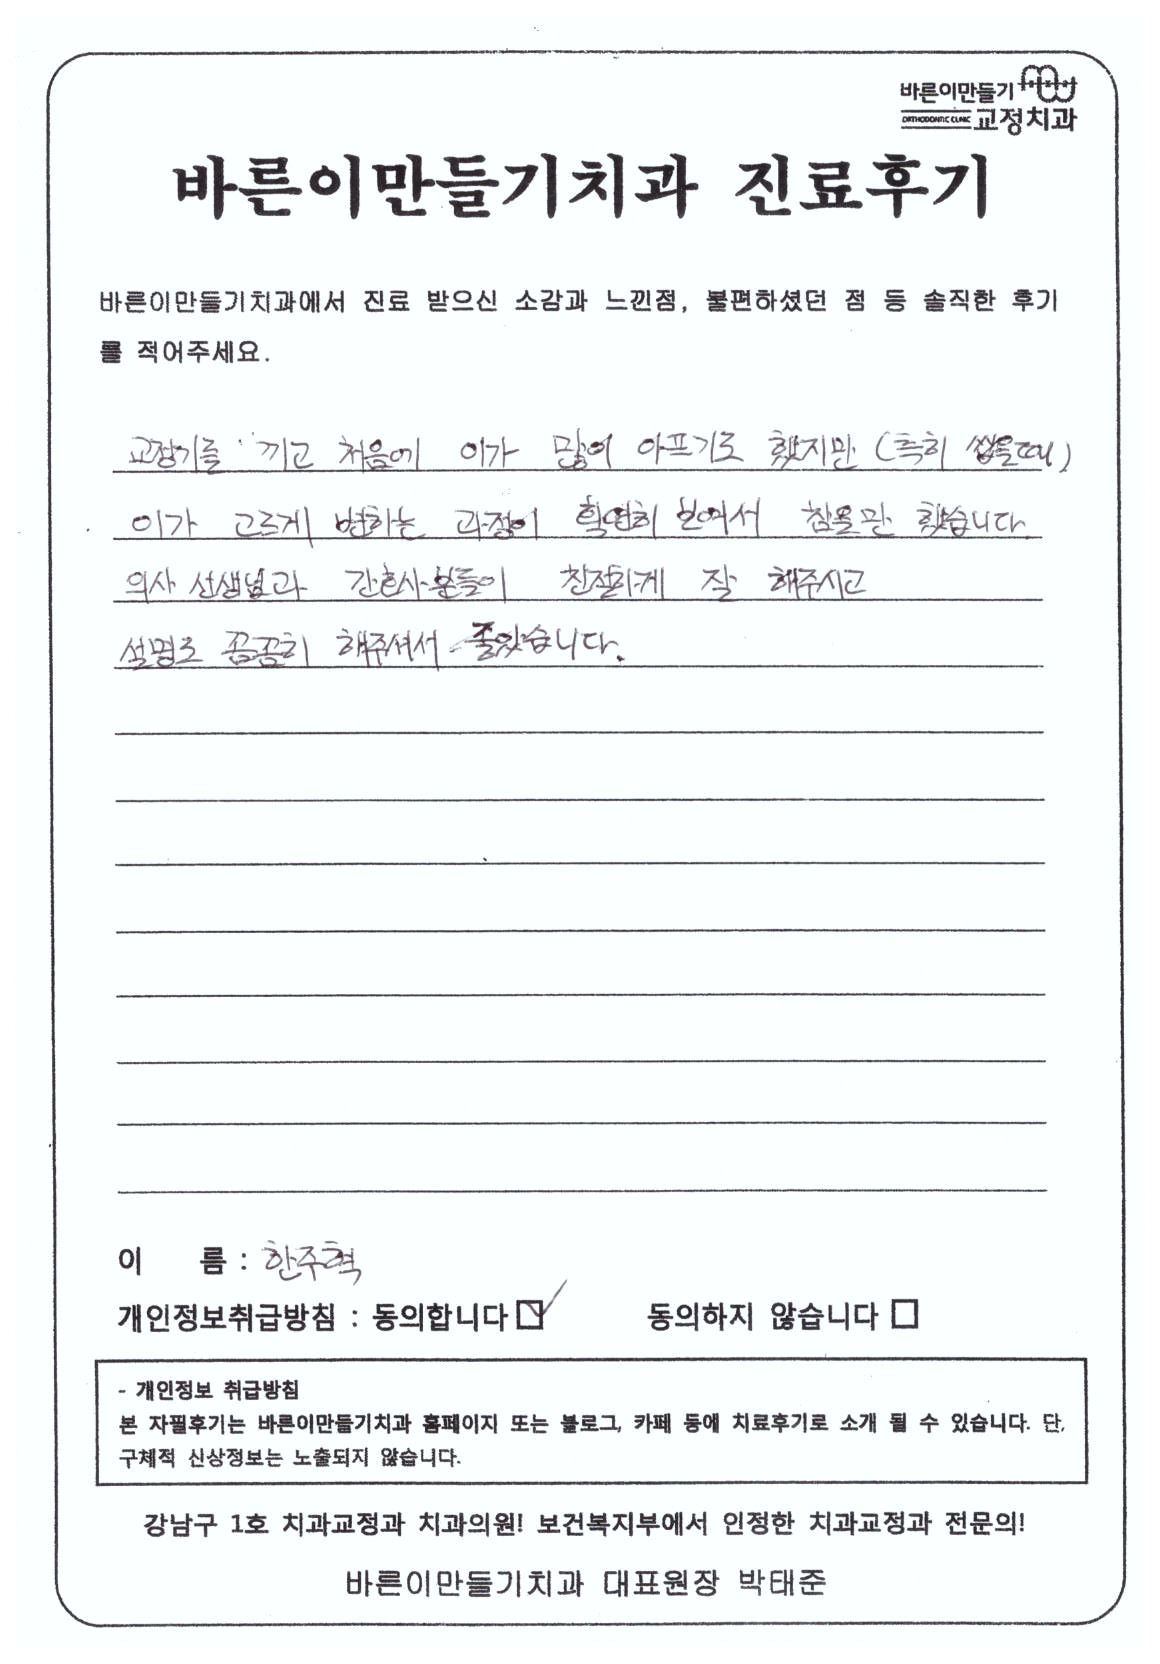 바른이만들기
ORTHODONTIC CLINIC 교정치과
바른이만들기치과 진료후기
바른이만들기치과에서 진료 받으신 소감과 느낀점, 불편하셨던 점 등 솔직한 후기
를 적어주세요.
교정기를 끼고 처음에 이가 많이 아프기도 했지만 (특히 씹을때)
이가 고르게 변하는 과정이 확연히 보여서 참을만 했습니다.
의사 선생님과 간호사분들이 친절하게 잘 해주시고
설명도 꼼꼼히 해주셔서 좋았습니다.
이 름 : 한주혁
개인정보취급방침 : 동의합니다 동의하지 않습니다
- 개인정보 취급방침
본 자필후기는 바른이만들기치과 홈페이지 또는 블로그, 카페 등에 치료후기로 소개 될 수 있습니다. 단,
구체적 신상정보는 노출되지 않습니다.
강남구 1호 치과교정과 치과의원! 보건복지부에서 인정한 치과교정과 전문의!
바른이만들기치과 대표원장 박태준